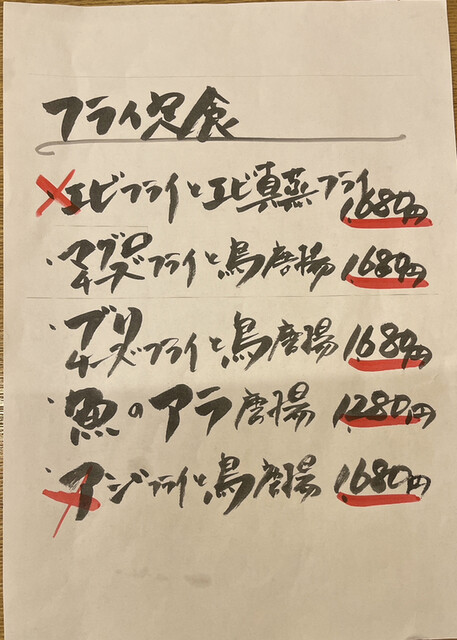 フライ定食
・エビフライとエビ真蒸フライ 1,680円
・マグロチーズフライと鳥唐揚 1,680円
・ブリチーズフライと鳥唐揚 1,680円
・魚のアラ唐揚 1,280円
・アジフライと鳥唐揚 1,680円